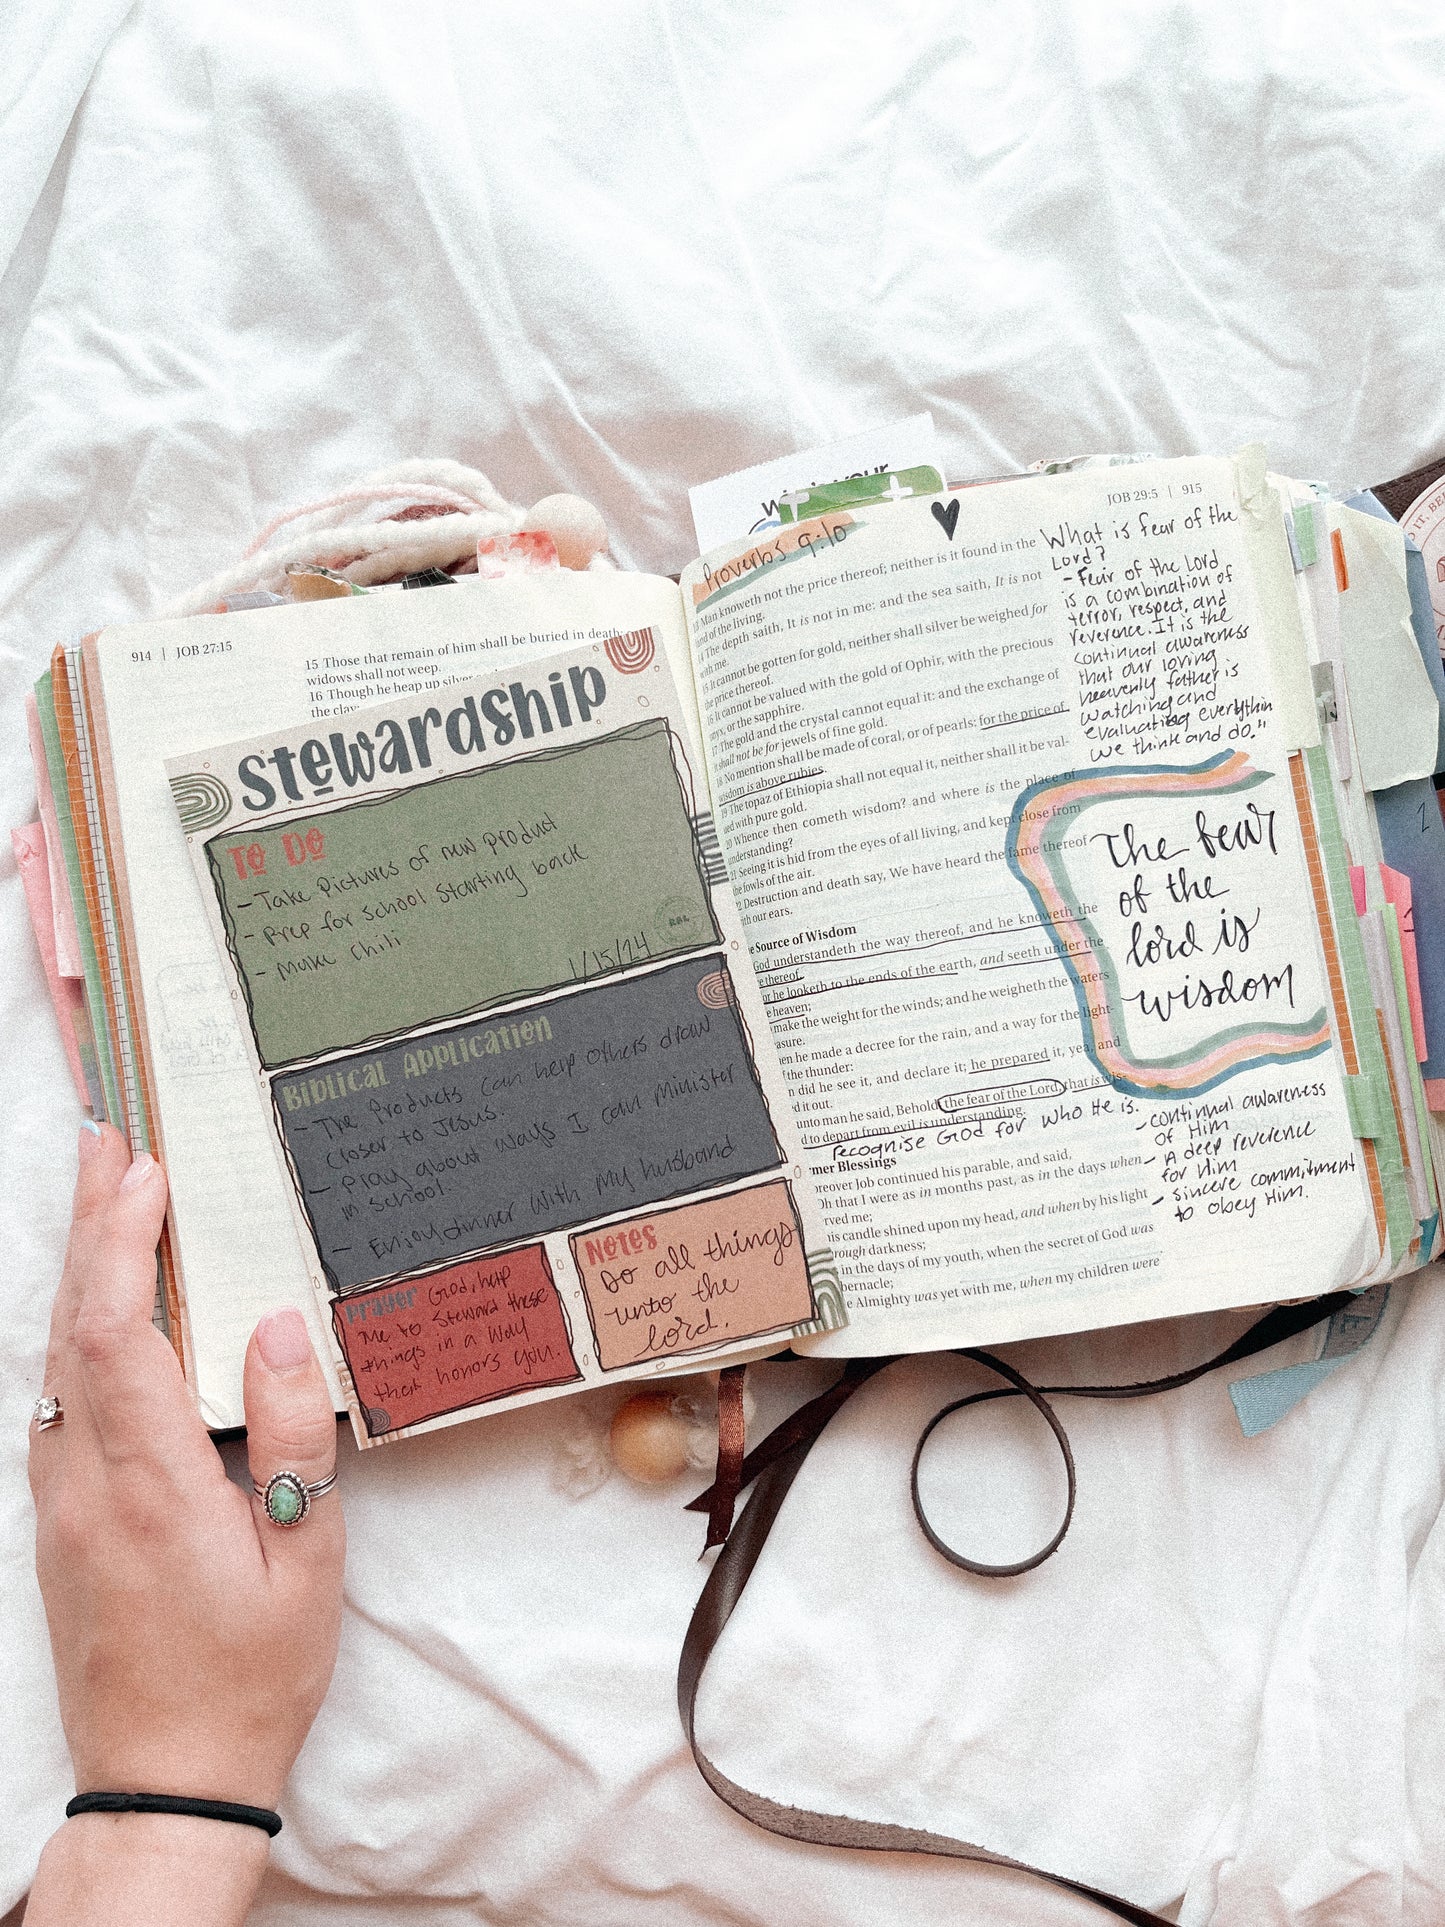 914 | JOB 27:15
15 Those that remain of him shall be buried in death:
widows shall not weep.
16 Though he heap up silver
the clay;
Stewardship
To Do
- Take Pictures of new product
- Prep for school starting back
- Make Chili
1/15/24
Biblical Application
- The products can help others draw
closer to Jesus.
- Pray about ways I can minister
in school.
- Enjoy dinner with my husband
Prayer God, help
me to steward these
things in a way
that honors you.
Notes
Do all things
unto the
Lord.
JOB 29:5 | 915
Proverbs 9:10
13 Man knoweth not the price thereof; neither is it found in the
of the living.
The depth saith, It is not in me: and the sea saith, It is not
with me.
It cannot be gotten for gold, neither shall silver be weighed for
the price thereof.
It cannot be valued with the gold of Ophir, with the precious
onyx, or the sapphire.
17 The gold and the crystal cannot equal it: and the exchange of
it shall not be for jewels of fine gold.
18 No mention shall be made of coral, or of pearls: for the price of
wisdom is above rubies.
19 The topaz of Ethiopia shall not equal it, neither shall it be val-
ued with pure gold.
20 Whence then cometh wisdom? and where is the place of
understanding?
21 Seeing it is hid from the eyes of all living, and kept close from
the fowls of the air.
Destruction and death say, We have heard the fame thereof
with our ears.
Source of Wisdom
God understandeth the way thereof, and he knoweth the
thereof.
he looketh to the ends of the earth, and seeth under the
heaven;
make the weight for the winds; and he weigheth the waters
he made a decree for the rain, and a way for the light-
the thunder:
did he see it, and declare it; he prepared it, yea, and
it out.
unto man he said, Behold, the fear of the Lord, that is wis-
to depart from evil is understanding.
recognise God for who He is.
Blessings
Job continued his parable, and said,
that I were as in months past, as in the days when
me;
his candle shined upon my head, and when by his light
through darkness;
in the days of my youth, when the secret of God was
Almighty was yet with me, when my children were
What is fear of the
Lord?
- Fear of the Lord
is a combination of
terror, respect, and
reverence. It is the
continual awareness
that our loving
heavenly father is
watching and
evaluating everythin
we think and do."
The fear
of the
Lord is
wisdom
- continual awareness
of Him
- A deep reverence
for Him
- Sincere commitment
to obey Him.